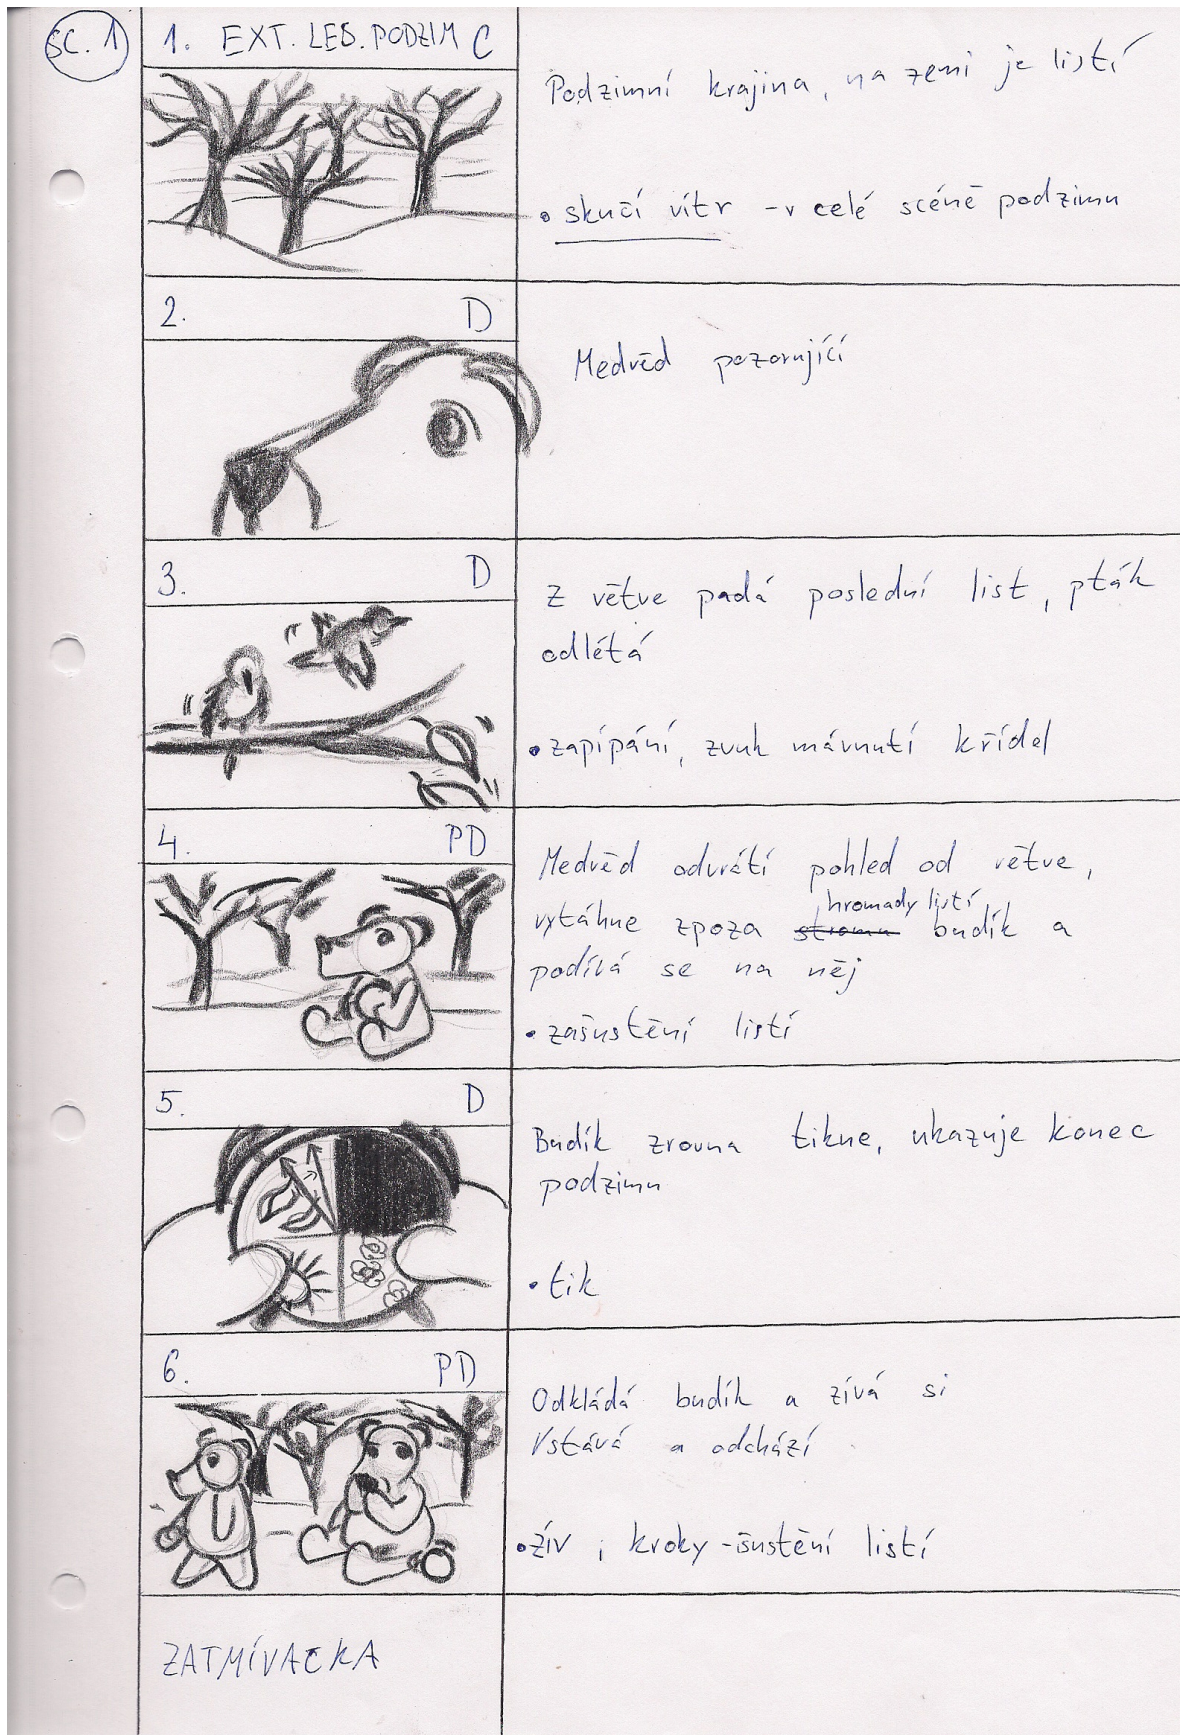 SC. 1
1. EXT. LES. PODZIM C
Podzimní krajina, na zemi je listí
• skučí vítr - v celé scéně podzimu
2. D
Medvěd pozorující
3. D
Z větve padá poslední list, pták
odlétá
• zapípání, zvuk mávnutí křídel
4. PD
Medvěd odvrátí pohled od větve,
hromady listí
vytáhne zpoza stromu budík a
podívá se na něj
• zašustění listí
5. D
Budík zrovna tikne, ukazuje konec
podzimu
• tik
6. PD
Odkládá budík a zívá si
Vstává a odchází
• zív i kroky - šustění listí
ZATMÍVAČKA